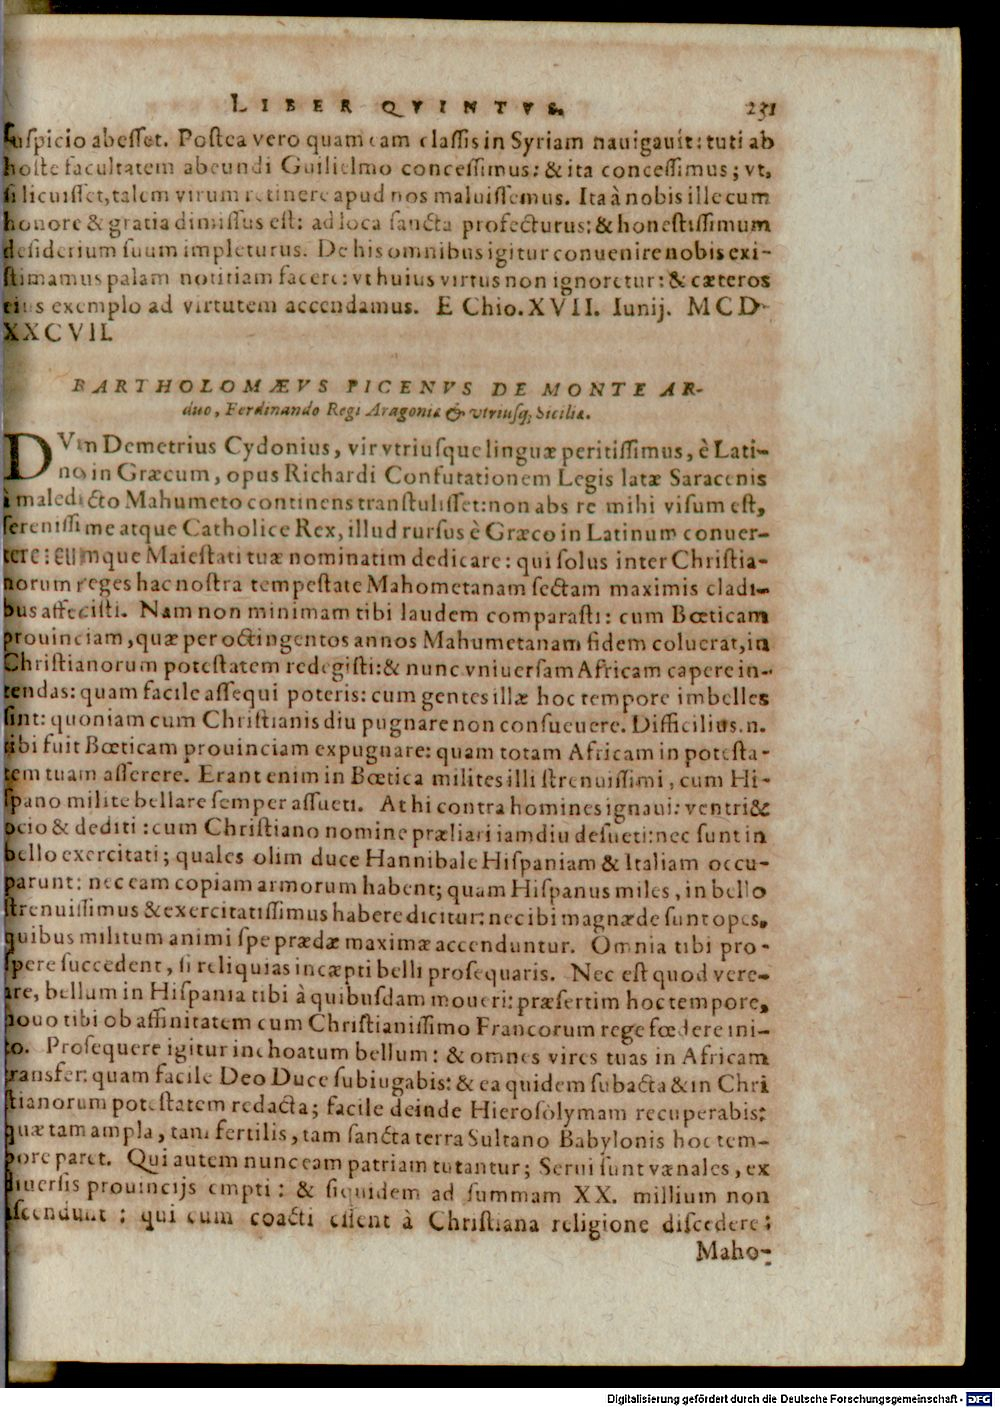 LIBER QVINTVS. 231
ſuſpicio abeſſet. Poſtea vero quam eam claſſis in Syriam nauigauit: tuti ab
hoſte facultatem abeundi Guilielmo conceſſimus: & ita conceſſimus; vt,
ſi licuiſſet, talem virum retinere apud nos maluiſſemus. Ita à nobis ille cum
honore & gratia dimiſſus eſt: ad loca ſancta profecturus: & honeſtiſſimum
deſiderium ſuum impleturus. De his omnibus igitur conuenire nobis exi-
ſtimamus palam notitiam facere: vt huius virtus non ignoretur: & cæteros
eius exemplo ad virtutem accendamus. E Chio. XVII. Iunij. MCD
XXCVII.
BARTHOLOMÆVS PICENVS DE MONTE AR-
duo, Ferdinando Regi Aragoniæ & vtriuſq; Siciliæ.
DVm Demetrius Cydonius, vir vtriuſque linguæ peritiſſimus, è Lati-
no in Græcum, opus Richardi Confutationem Legis latæ Saracenis
à maledicto Mahumeto continens tranſtuliſſet: non abs re mihi viſum eſt,
ſereniſſime atque Catholice Rex, illud rurſus è Græco in Latinum conuer-
tere: eumque Maieſtati tuæ nominatim dedicare: qui ſolus inter Chriſtia-
norum reges hac noſtra tempeſtate Mahometanam ſectam maximis cladi-
bus affeciſti. Nam non minimam tibi laudem comparaſti: cum Bœticam
prouinciam, quæ per octingentos annos Mahumetanam fidem coluerat, in
Chriſtianorum poteſtatem redegiſti: & nunc vniuerſam Africam capere in-
tendas: quam facile aſſequi poteris: cum gentes illæ hoc tempore imbelles
ſint: quoniam cum Chriſtianis diu pugnare non conſueuere. Difficilius. n.
tibi fuit Bœticam prouinciam expugnare: quam totam Africam in poteſta-
tem tuam aſſerere. Erant enim in Bœtica milites illi ſtrenuiſſimi, cum Hi-
ſpano milite bellare ſemper aſſueti. At hi contra homines ignaui: ventri &
ocio & dediti: cum Chriſtiano nomine præliari iamdiu deſueti: nec ſunt in
bello exercitati; quales olim duce Hannibale Hiſpaniam & Italiam occu-
parunt: nec eam copiam armorum habent; quam Hiſpanus miles, in bello
ſtrenuiſſimus & exercitatiſſimus habere dicitur: nec ibi magnæ deſunt opes,
quibus militum animi ſpe prædæ maximæ accenduntur. Omnia tibi pro-
ſpere ſuccedent, ſi reliquias incæpti belli proſequaris. Nec eſt quod vere-
are, bellum in Hiſpania tibi à quibuſdam moueri: præſertim hoc tempore,
nouo tibi ob affinitatem cum Chriſtianiſſimo Francorum rege fœdere ini-
to. Proſequere igitur inchoatum bellum: & omnes vires tuas in Africam
transfer: quam facile Deo Duce ſubiugabis: & ea quidem ſubacta & in Chri
ſtianorum poteſtatem redacta; facile deinde Hieroſolymam recuperabis:
quæ tam ampla, tam fertilis, tam ſancta terra Sultano Babylonis hoc tem-
pore paret. Qui autem nunc eam patriam tutantur; Serui ſunt vænales, ex
diuerſis prouincijs empti: & ſiquidem ad ſummam XX. millium non
aſcendunt: qui cum coacti eſſent à Chriſtiana religione diſcedere:
Maho-
Digitalisierung gefördert durch die Deutsche Forschungsgemeinschaft - DFG